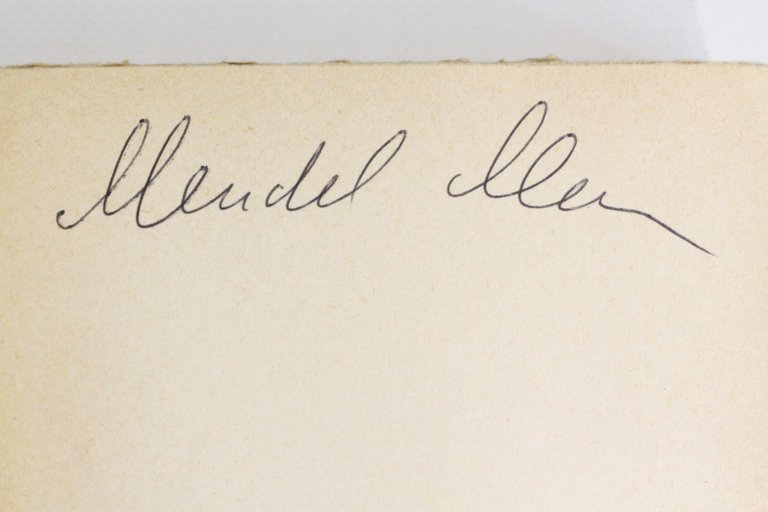 Mendel Man